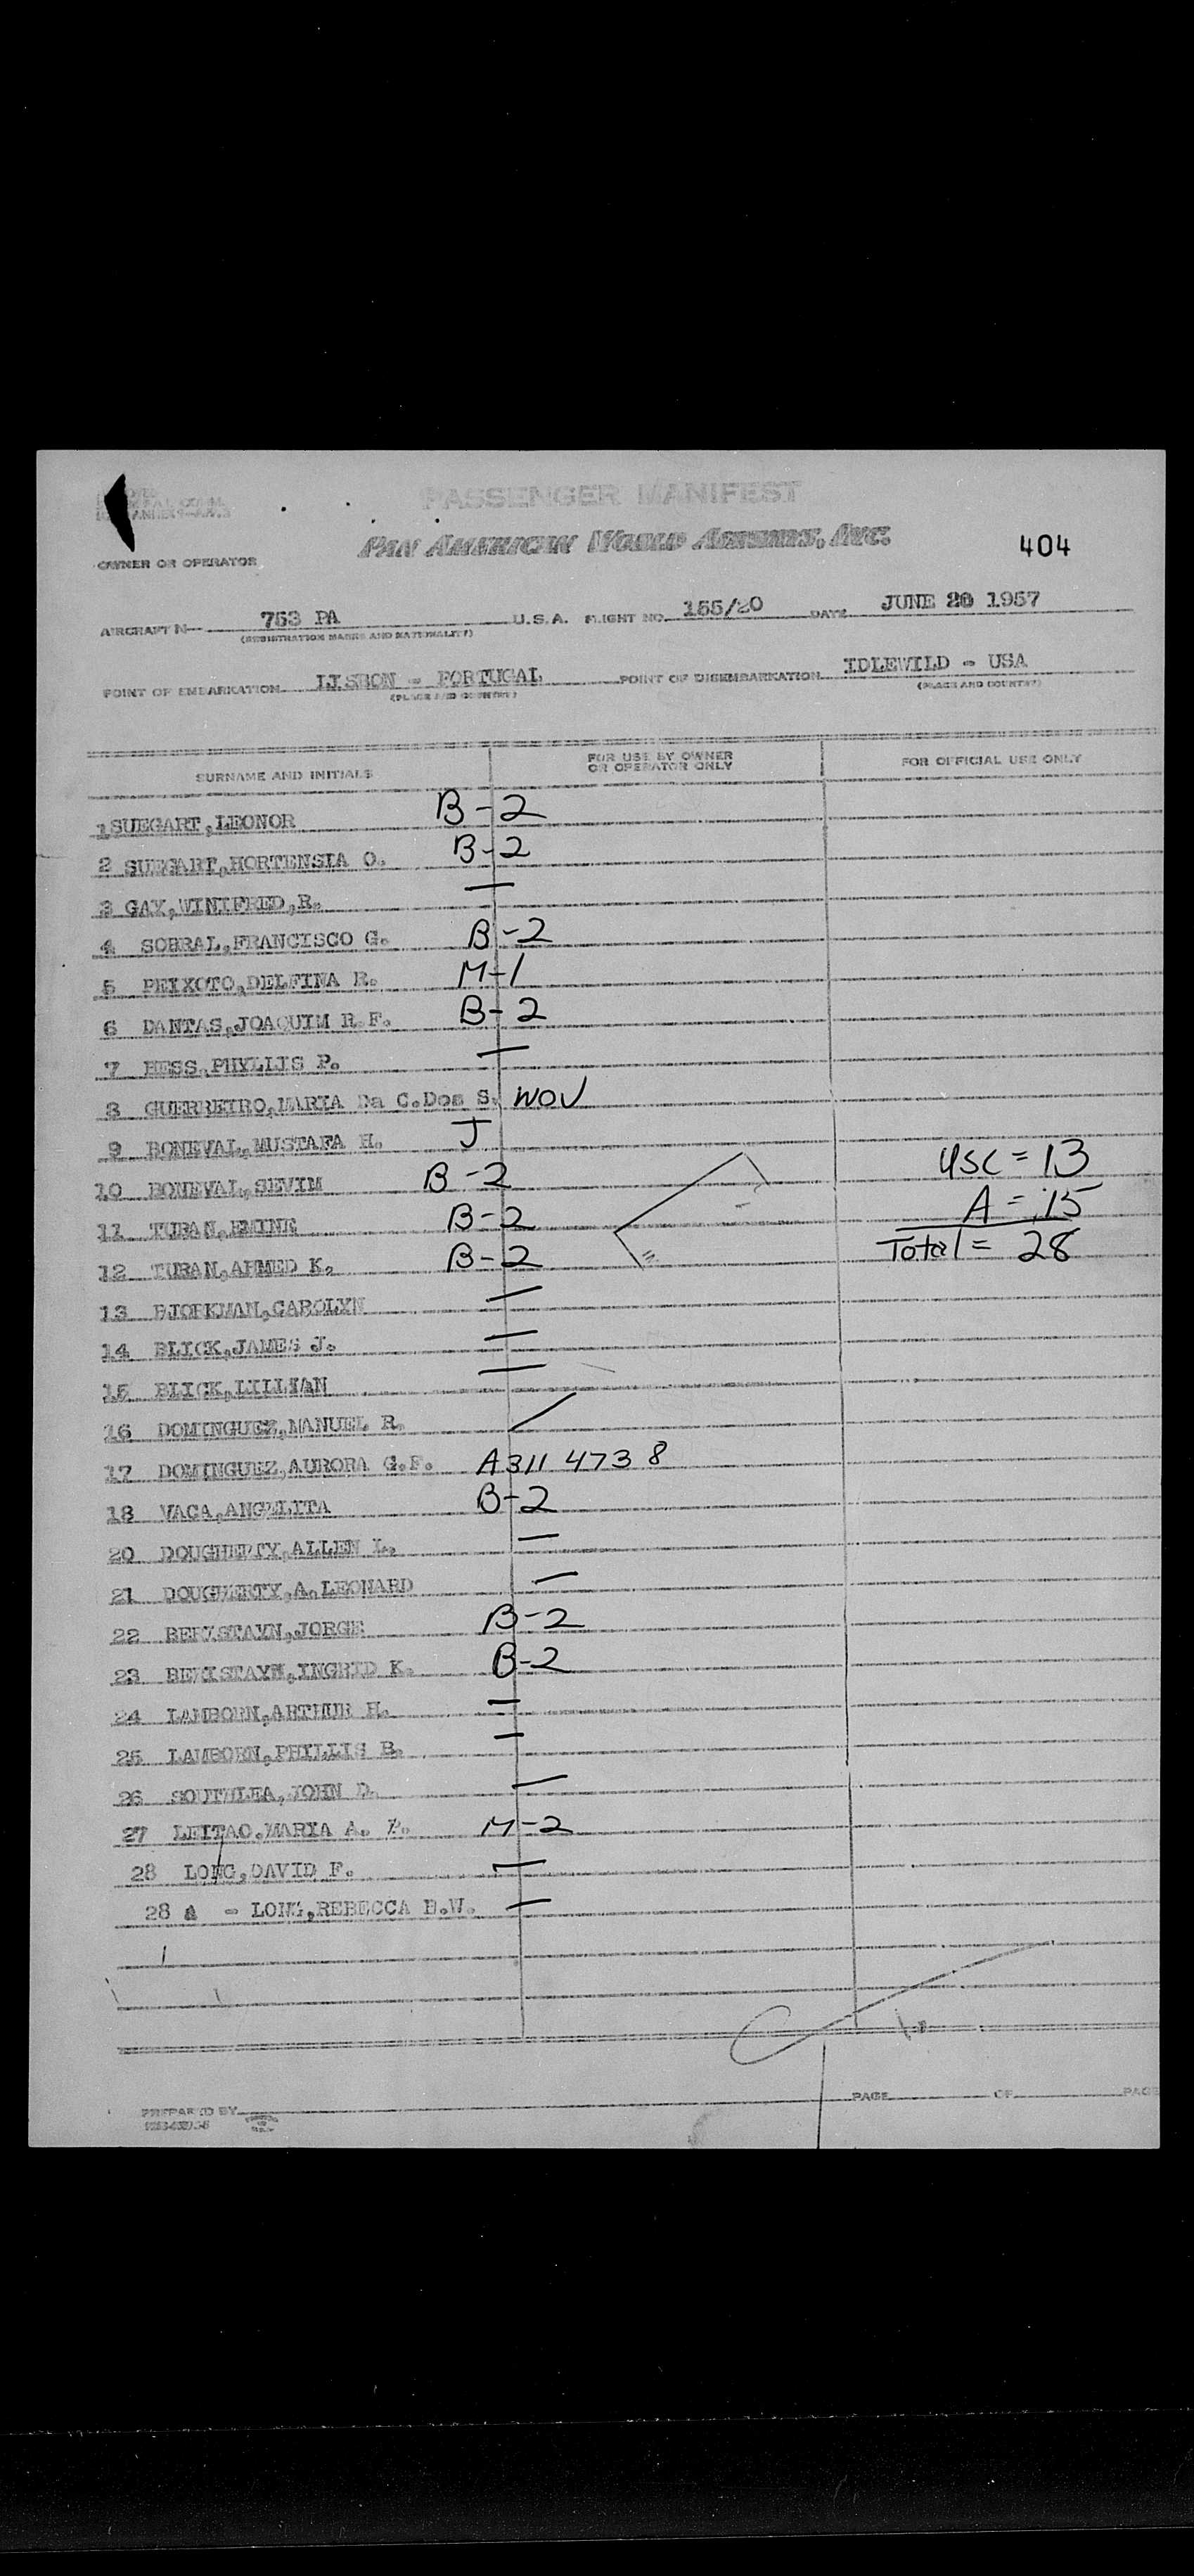 PASSENGER MANIFEST
PAN AMERICAN WORLD AIRWAYS, INC.
404
OWNER OR OPERATOR
AIRCRAFT N— 753 PA U.S.A. FLIGHT NO. 155/20 DATE JUNE 20 1957
(REGISTRATION MARKS AND NATIONALITY)
POINT OF EMBARKATION LISBON - PORTUGAL POINT OF DISEMBARKATION IDLEWILD - USA
(PLACE AND COUNTRY) (PLACE AND COUNTRY)
SURNAME AND INITIALS FOR USE BY OWNER OR OPERATOR ONLY FOR OFFICIAL USE ONLY
1 SUEGART, LEONOR B-2
2 SUEGART, HORTENSIA O. B-2
3 GAY, WINIFRED, R. —
4 SOBRAL, FRANCISCO G. B-2
5 PEIXOTO, DELFINA R. M-1
6 DANTAS, JOAQUIM R.F. B-2
7 HESS, PHYLLIS P. —
8 GUERREIRO, MARIA Da C.Dos S. WOV
9 BONEVAL, MUSTAFA H. J
10 BONEVAL, SEVIM B-2
USC = 13
11 TURAN, EMINE B-2
A = 15
12 TURAN, AHMED K. B-2
Total = 28
13 BJORKMAN, CAROLYN —
14 BLICK, JAMES J. —
15 BLICK, LILLIAN —
16 DOMINGUEZ, MANUEL R. /
17 DOMINGUEZ, AURORA G.F. A311 4738
18 VACA, ANGELITA B-2
20 DOUGHERTY, ALLEN L. —
21 DOUGHERTY, A. LEONARD —
22 BERISTAYN, JORGE B-2
23 BERISTAYN, INGRID K. B-2
24 LAMBORN, ARTHUR H. —
25 LAMBORN, PHILLIS B. —
26 SOUTHLEA, JOHN D. —
27 LEITAO, MARIA A. P. M-2
28 LONG, DAVID F. —
28 A - LONG, REBECCA B.W. —
PAGE OF PAGE
PREPARED BY